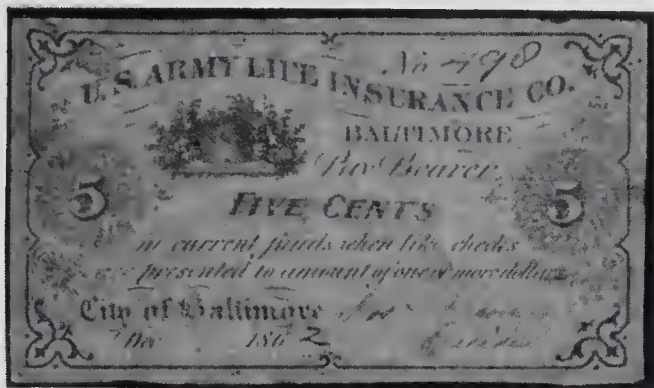 No 498
U.S. ARMY LIFE INSURANCE CO.
BALTIMORE
Pay Bearer
5 FIVE CENTS 5
in current funds when like checks
are presented to amount of one or more dollars
City of Baltimore
186 2